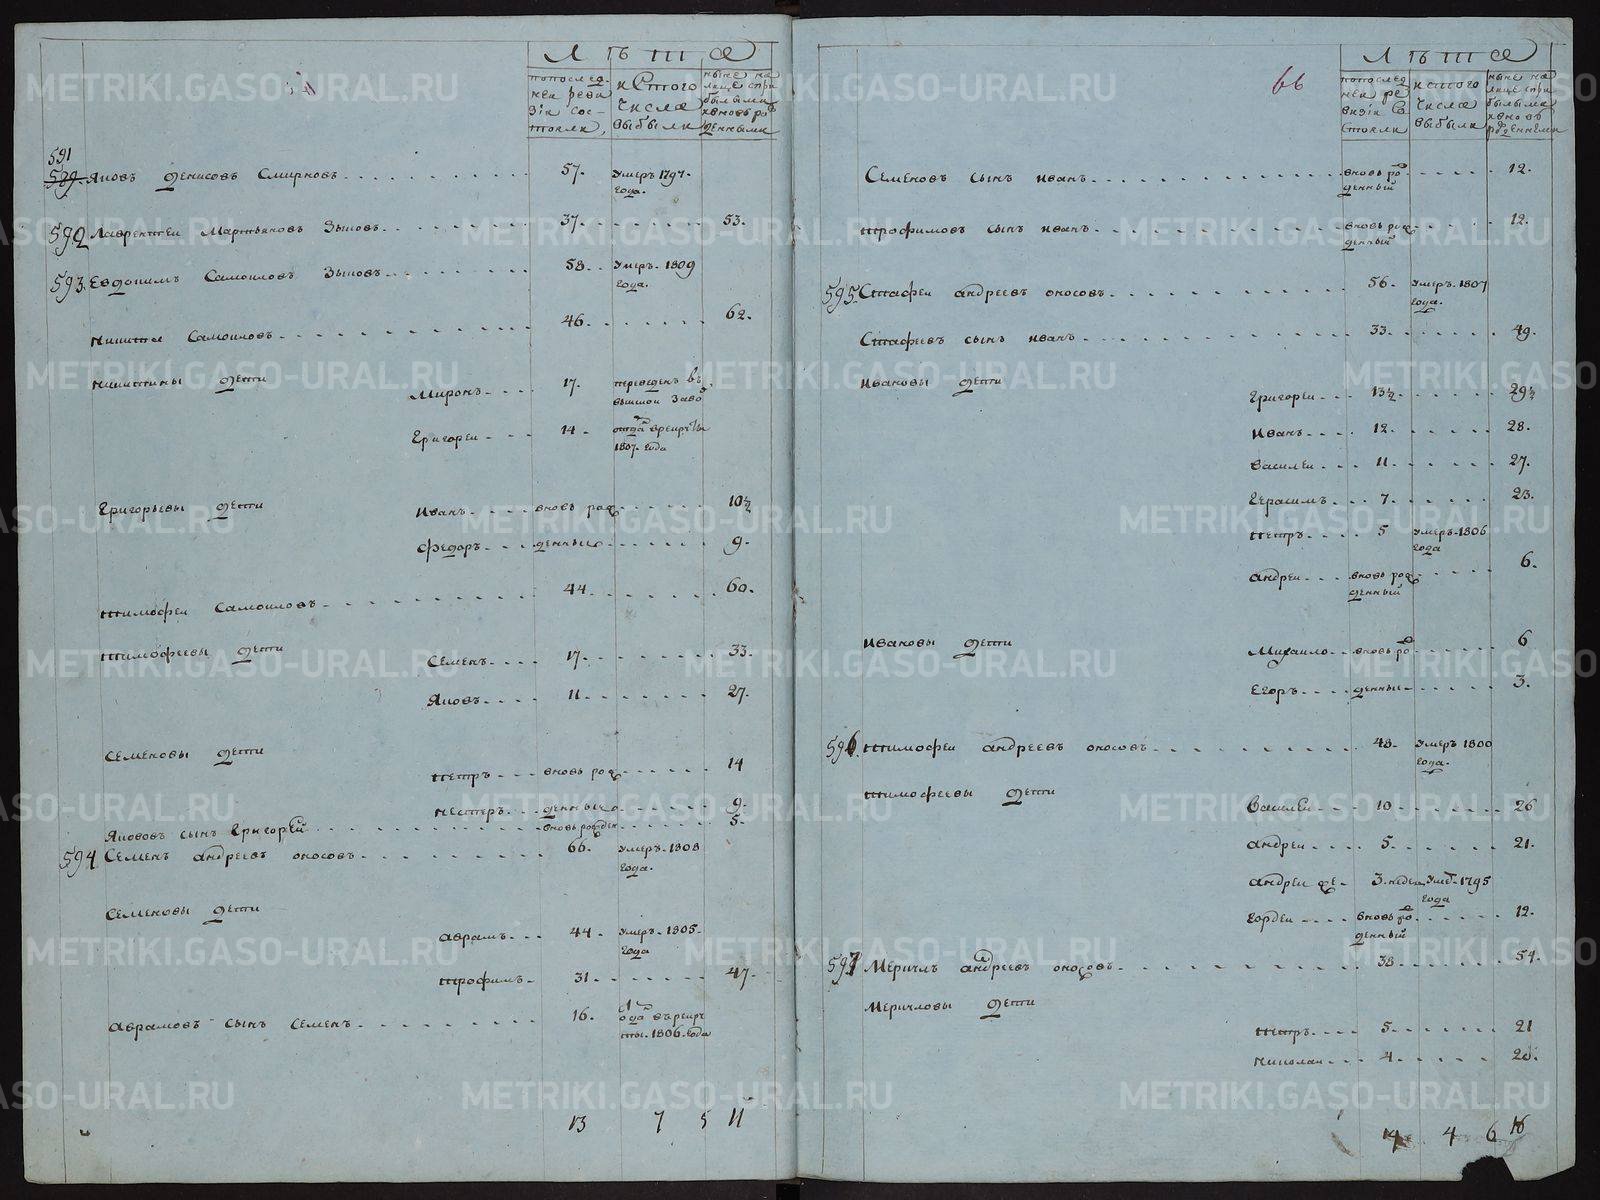 Лѣта
попослед-
ней реви
зіи сос-
тояли,
исего
числа
выбыли
ныне на
лице спри
былыми
иновь ро
денными
591
589. Яковъ Денисовъ Смирновъ 57. Умеръ 1797.
года.
592 Лаврентеи Мартьяновъ Зыковъ 37. 53.
593. Евдокимъ Самоиловъ Зыковъ 58. Умеръ. 1809
года.
Никита Самоиловъ 46. 62.
Никитины дети
Миронъ 17. переведенъ въ
вышкои Заво
Григореи 14. отдãнъ врекруты
1807. года
Григорьевы дети
Иванъ вновь рож 10½
Федоръ денные 9.
Тимофеи Самоиловъ 44. 60.
Тимофеевы дети
Семенъ 17. 33.
Яковъ 11. 27.
Семеновы дети
Петръ вновь рож 14
Нестеръ денные 9.
Якововъ сынъ Григорей вновь рожден 5.
594 Семенъ андреевъ окосовъ 66. умеръ. 1808
года.
Семеновы дети
аврамъ 44. умеръ. 1805.
года
трофимъ 31. 47.
аврамовъ сынъ Семенъ 16. отданъ врекру
ты. 1806. года
13 7 5 11
66
Лѣта
попослед
ней ре
визіи со
стояли
исего
числа
выбыли
ныне на
лице спри
былыми
иновь
рожденными
Семеновъ сынъ иванъ вновь рож 12.
денный
трофимовъ сынъ иванъ вновь рож 12.
денный
595 Стафеи андреевъ окосовъ 56. умеръ. 1807
года.
Стафеевъ сынъ иванъ 33. 49.
Ивановы дети
Григореи 13½ 29½
Иванъ 12. 28.
Василеи 11. 27.
Герасимъ 7. 23.
Петръ 5 умеръ. 1806
года
андреи вновь рож 6.
денный
Ивановы дети
Михаило вновь рож 6
Егоръ денные 3.
596 Тимофеи андреевъ окосовъ 48. умеръ 1800
года.
Тимофеевы дети
Василеи 10 26
андреи 5. 21.
андреи же 3. недели умеръ 1795
года
Гордеи вновь рож 12.
денный
597 Меркилъ андреевъ окосовъ 38 54.
Меркиловы дети
Петръ 5. 21
Николаи 4. 20.
14 4 6 16
METRIKI.GASO-URAL.RU